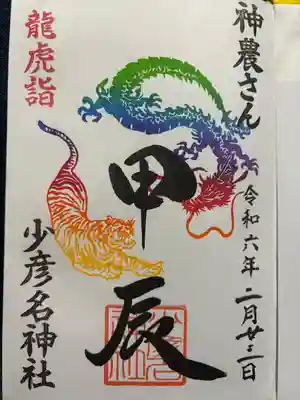 神農さん
令和六年 二月廿三日
甲辰
龍虎詣
少彦名神社